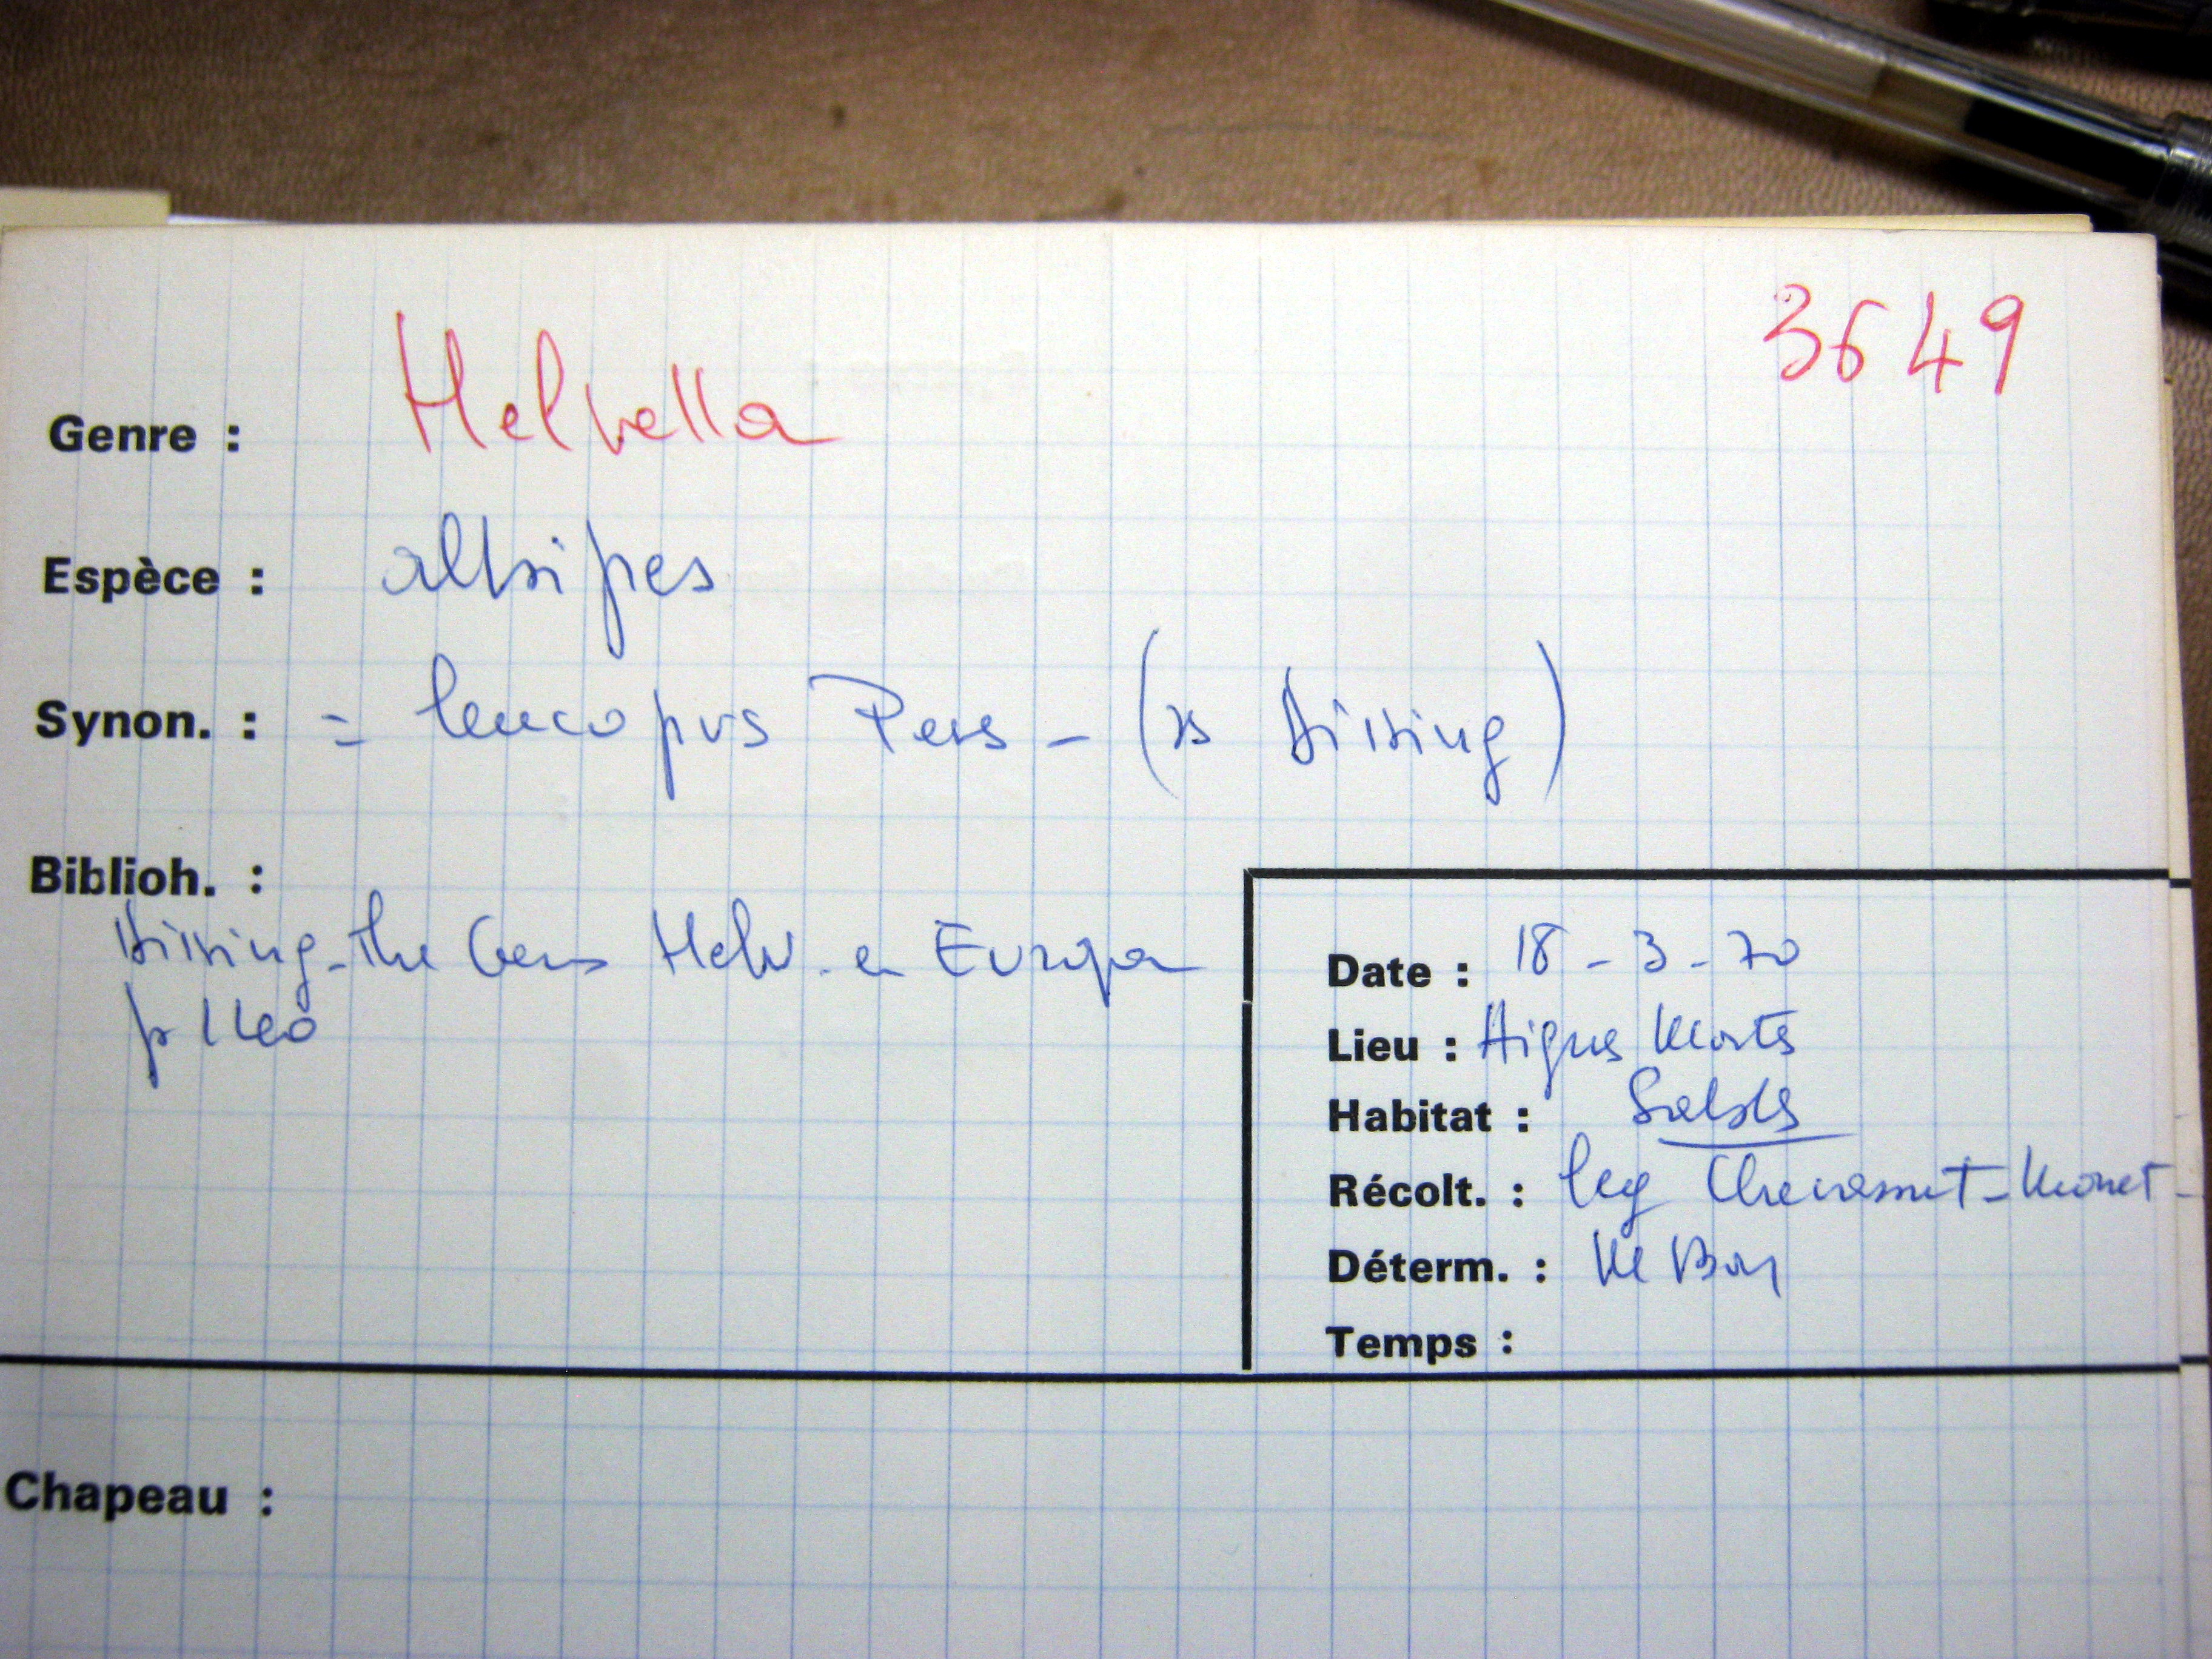 3649
Genre : Helvella
Espèce : albipes
Synon. : = leucopus Pers - (ss Dissing)
Biblioh. :
Dissing - the Genus Helv. en Europa
p
Date : 18 - 3 - 70
Lieu : Aigues Mortes
Habitat : Sables
Récolt. : leg Chevassut - Monet -
Déterm. :
Temps :
Chapeau :